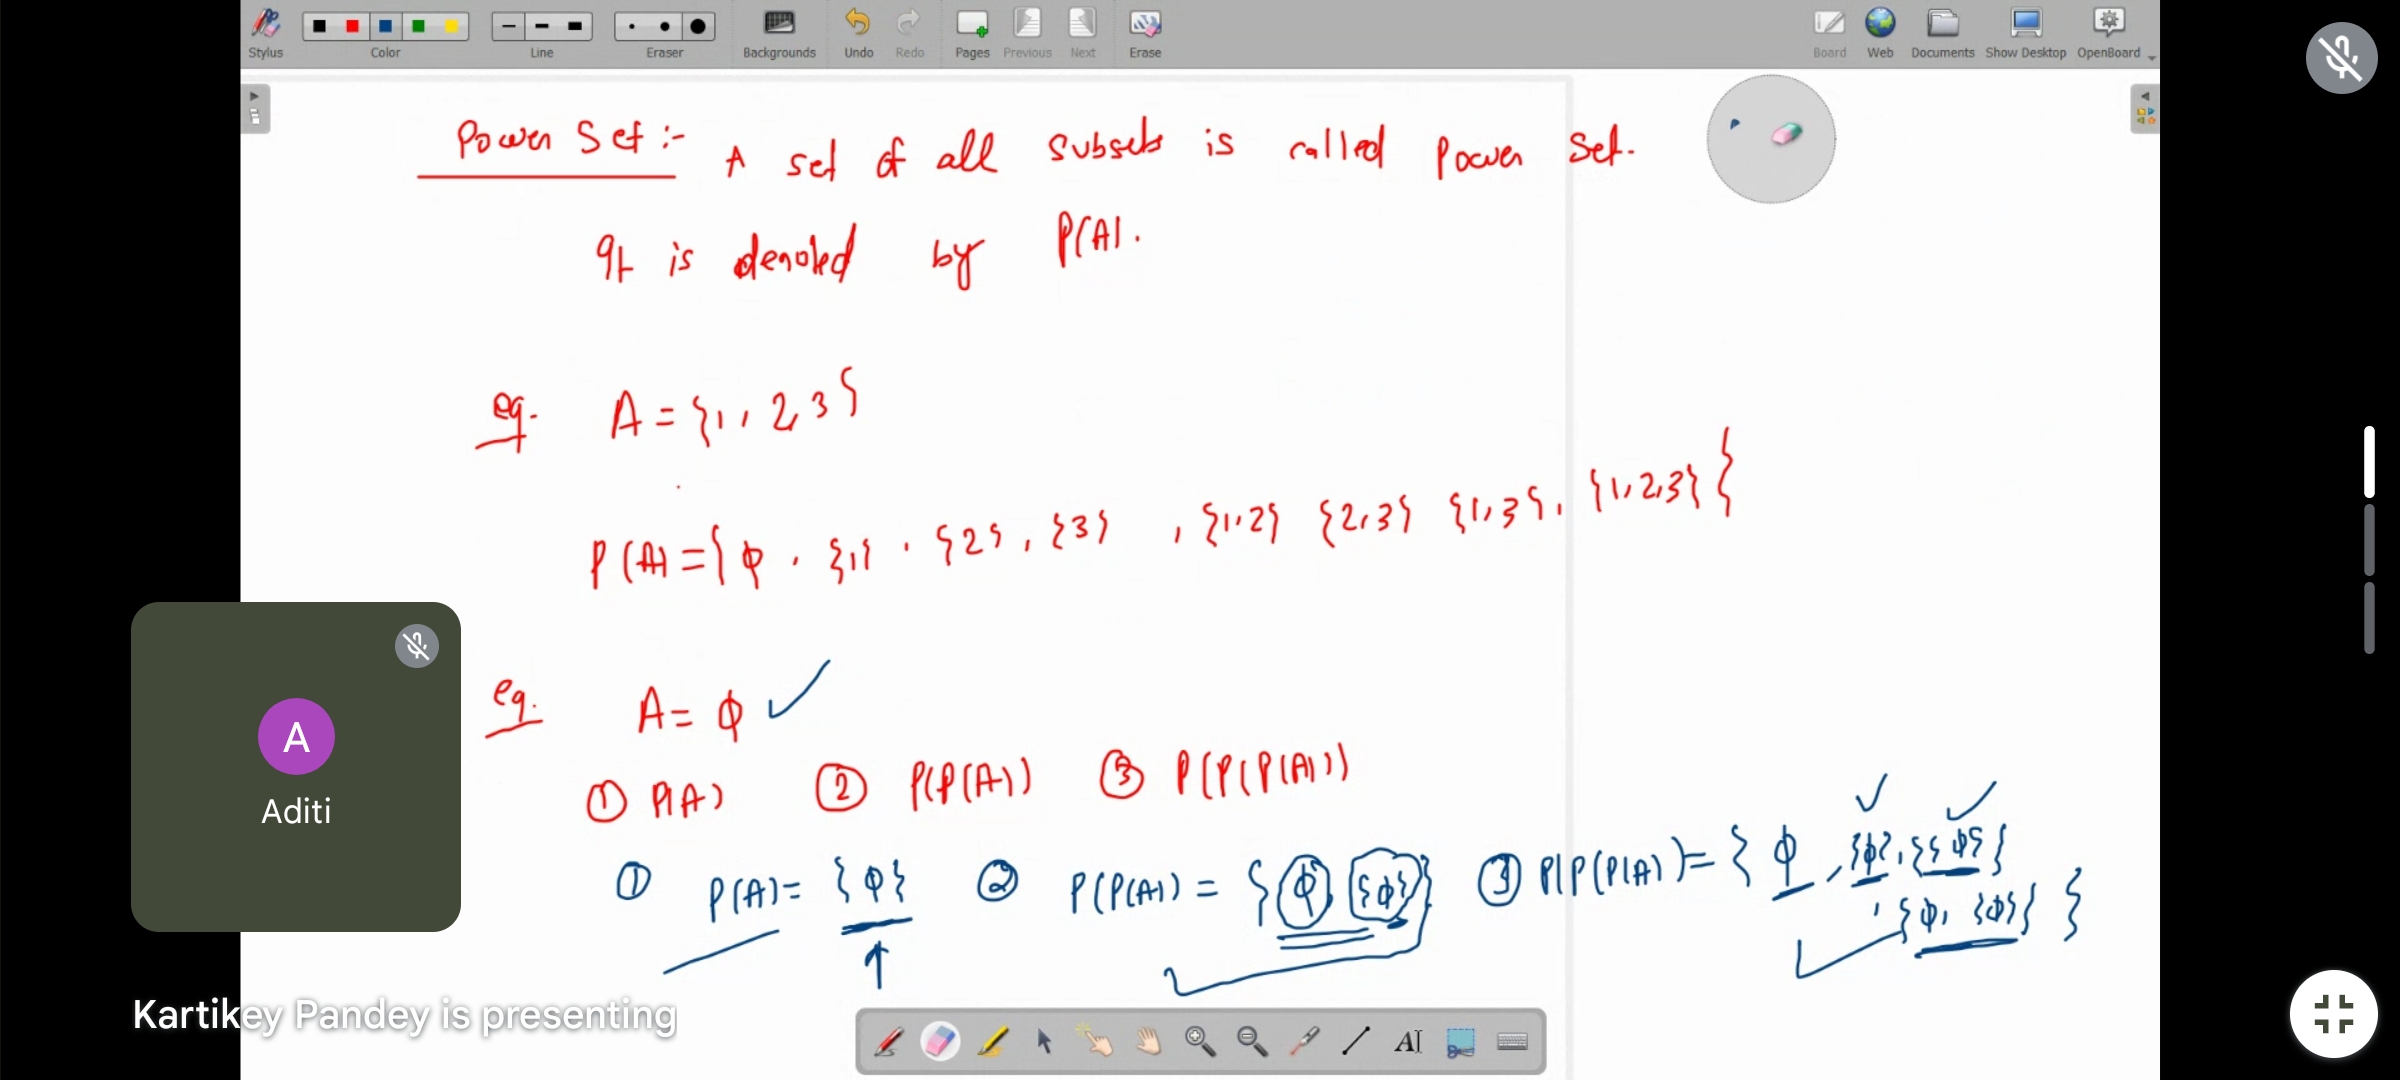 Stylus Color Line Eraser Backgrounds Undo Redo Pages Previous Next Erase Board Web Documents Show Desktop OpenBoard
Power Set :- A set of all subsets is called Power Set.
It is denoted by P(A).
eg. A = {1, 2, 3}
P(A) = {ϕ, {1}, {2}, {3}, {1,2} {2,3} {1,3}, {1,2,3}}
eg. A = ϕ ✓
① P(A) ② P(P(A)) ③ P(P(P(A)))
① P(A) = {ϕ} ② P(P(A)) = {ϕ, {ϕ}} ③ P(P(P(A)) = {ϕ, {ϕ}, {{ϕ}}
, {ϕ, {ϕ}} }
A
Aditi
Kartikey Pandey is presenting
AI